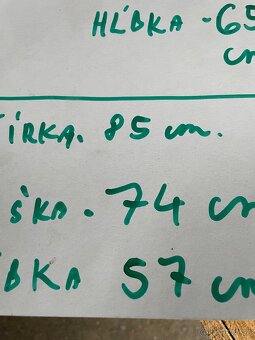 HĹBKA - 65
cm
ŠÍRKA. 85 cm.
ŠKA. 74 cm
BKA 57 cm